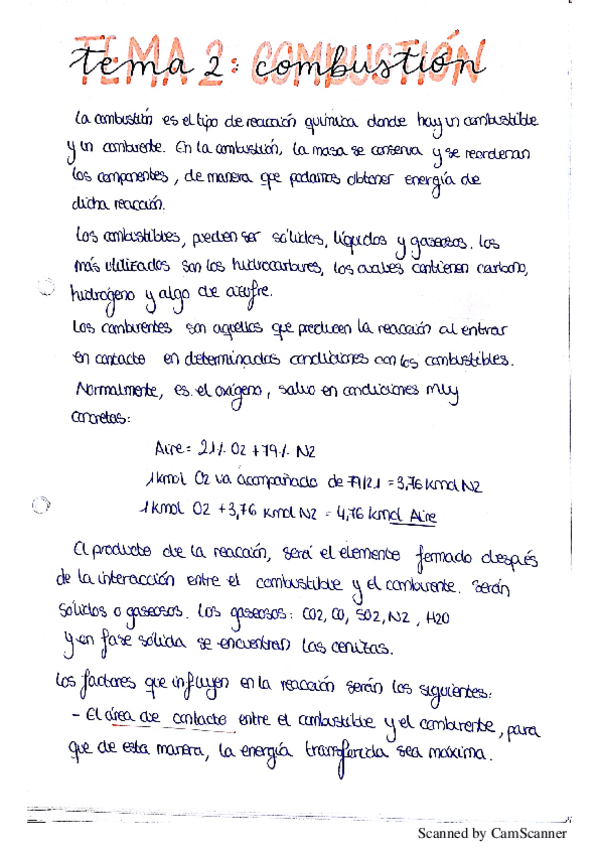 TEMA 2: COMBUSTIÓN
tema 2: combustión
La combustión es el tipo de reacción química donde hay un combustible
y un comburente. En la combustión, la masa se conserva y se reordenan
los componentes, de manera que podamos obtener energía de
dicha reacción.
Los combustibles, pueden ser sólidos, líquidos y gaseosos. Los
más utilizados son los hidrocarburos, los cuales contienen carbono,
hidrógeno y algo de azufre.
Los comburentes son aquellos que producen la reacción al entrar
en contacto en determinadas condiciones con los combustibles.
Normalmente, es el oxígeno, salvo en condiciones muy
concretas:
Aire = 21% O2 + 79% N2
1 kmol O2 va acompañado de 79/21 = 3,76 kmol N2
1 kmol O2 + 3,76 kmol N2 = 4,76 kmol Aire
El producto de la reacción, será el elemento formado después
de la interacción entre el combustible y el comburente. Serán
sólidos o gaseosos. Los gaseosos: CO2, CO, SO2, N2, H2O
y en fase sólida se encuentran las cenizas.
Los factores que influyen en la reacción serán los siguientes:
- El área de contacto entre el combustible y el comburente, para
que de esta manera, la energía transferida sea máxima.
Scanned by CamScanner